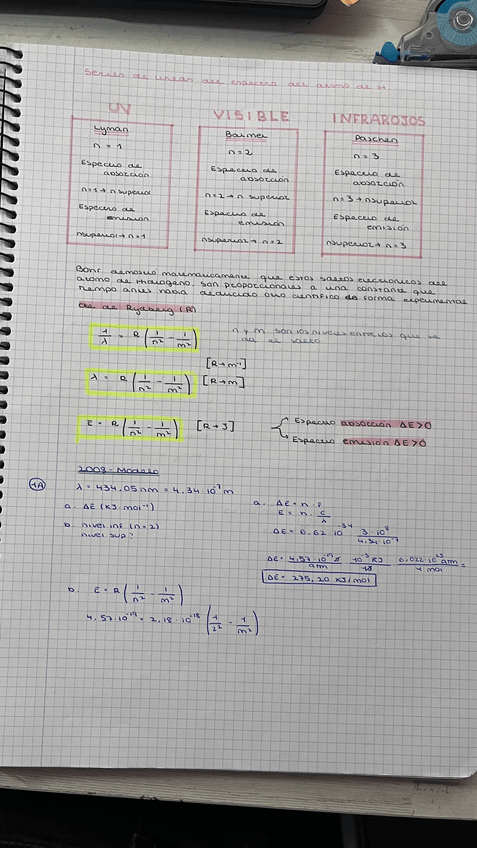 Series de líneas del espectro del átomo de H
UV
Lyman
n = 1
Espectro de
absorción
n=1→ n superior
Espectro de
emisión
nsuperior→ n=1
VISIBLE
Balmer
n=2
Espectro de
absorción
n=2→ n superior
Espectro de
emisión
nsuperior→ n=2
INFRAROJOS
Paschen
n = 3
Espectro de
absorción
n=3→nsuperior
Espectro de
emisión
nsuperior→ n=3
Bohr demostró matemáticamente que estos saltos electrónicos del
átomo de Hidrógeno, son proporcionales a una constante que
tiempo antes había deducido otro científico de forma experimental
cte de Rydberg (R)
1/λ = R (1/n² - 1/m²)
n y m son los niveles entre los que se
da el salto
[R→m⁻¹]
λ = R (1/n² - 1/m²) [R→m]
E = R (1/n² - 1/m²) [R→J]
Espectro absorción ΔE>0
Espectro emisión ΔE>0
2008-Modelo
1A
λ = 434,05nm = 4,34·10⁻⁷m
a. ΔE (KJ·mol⁻¹)
b. nivel inf (n=2)
nivel sup?
a. ΔE = h·f
E = h · c/λ
ΔE = 6,62·10⁻³⁴ 3·10⁸/4,34·10⁻⁷
ΔE = 4,57·10⁻¹⁹ J/atm · 10⁻³ KJ/1J · 6,022·10²³ atm/1 mol =
ΔE = 275,20 KJ/mol
b. E = R (1/n² - 1/m²)
4,57·10⁻¹⁹ = 2,18·10⁻¹⁸ (1/2² - 1/m²)